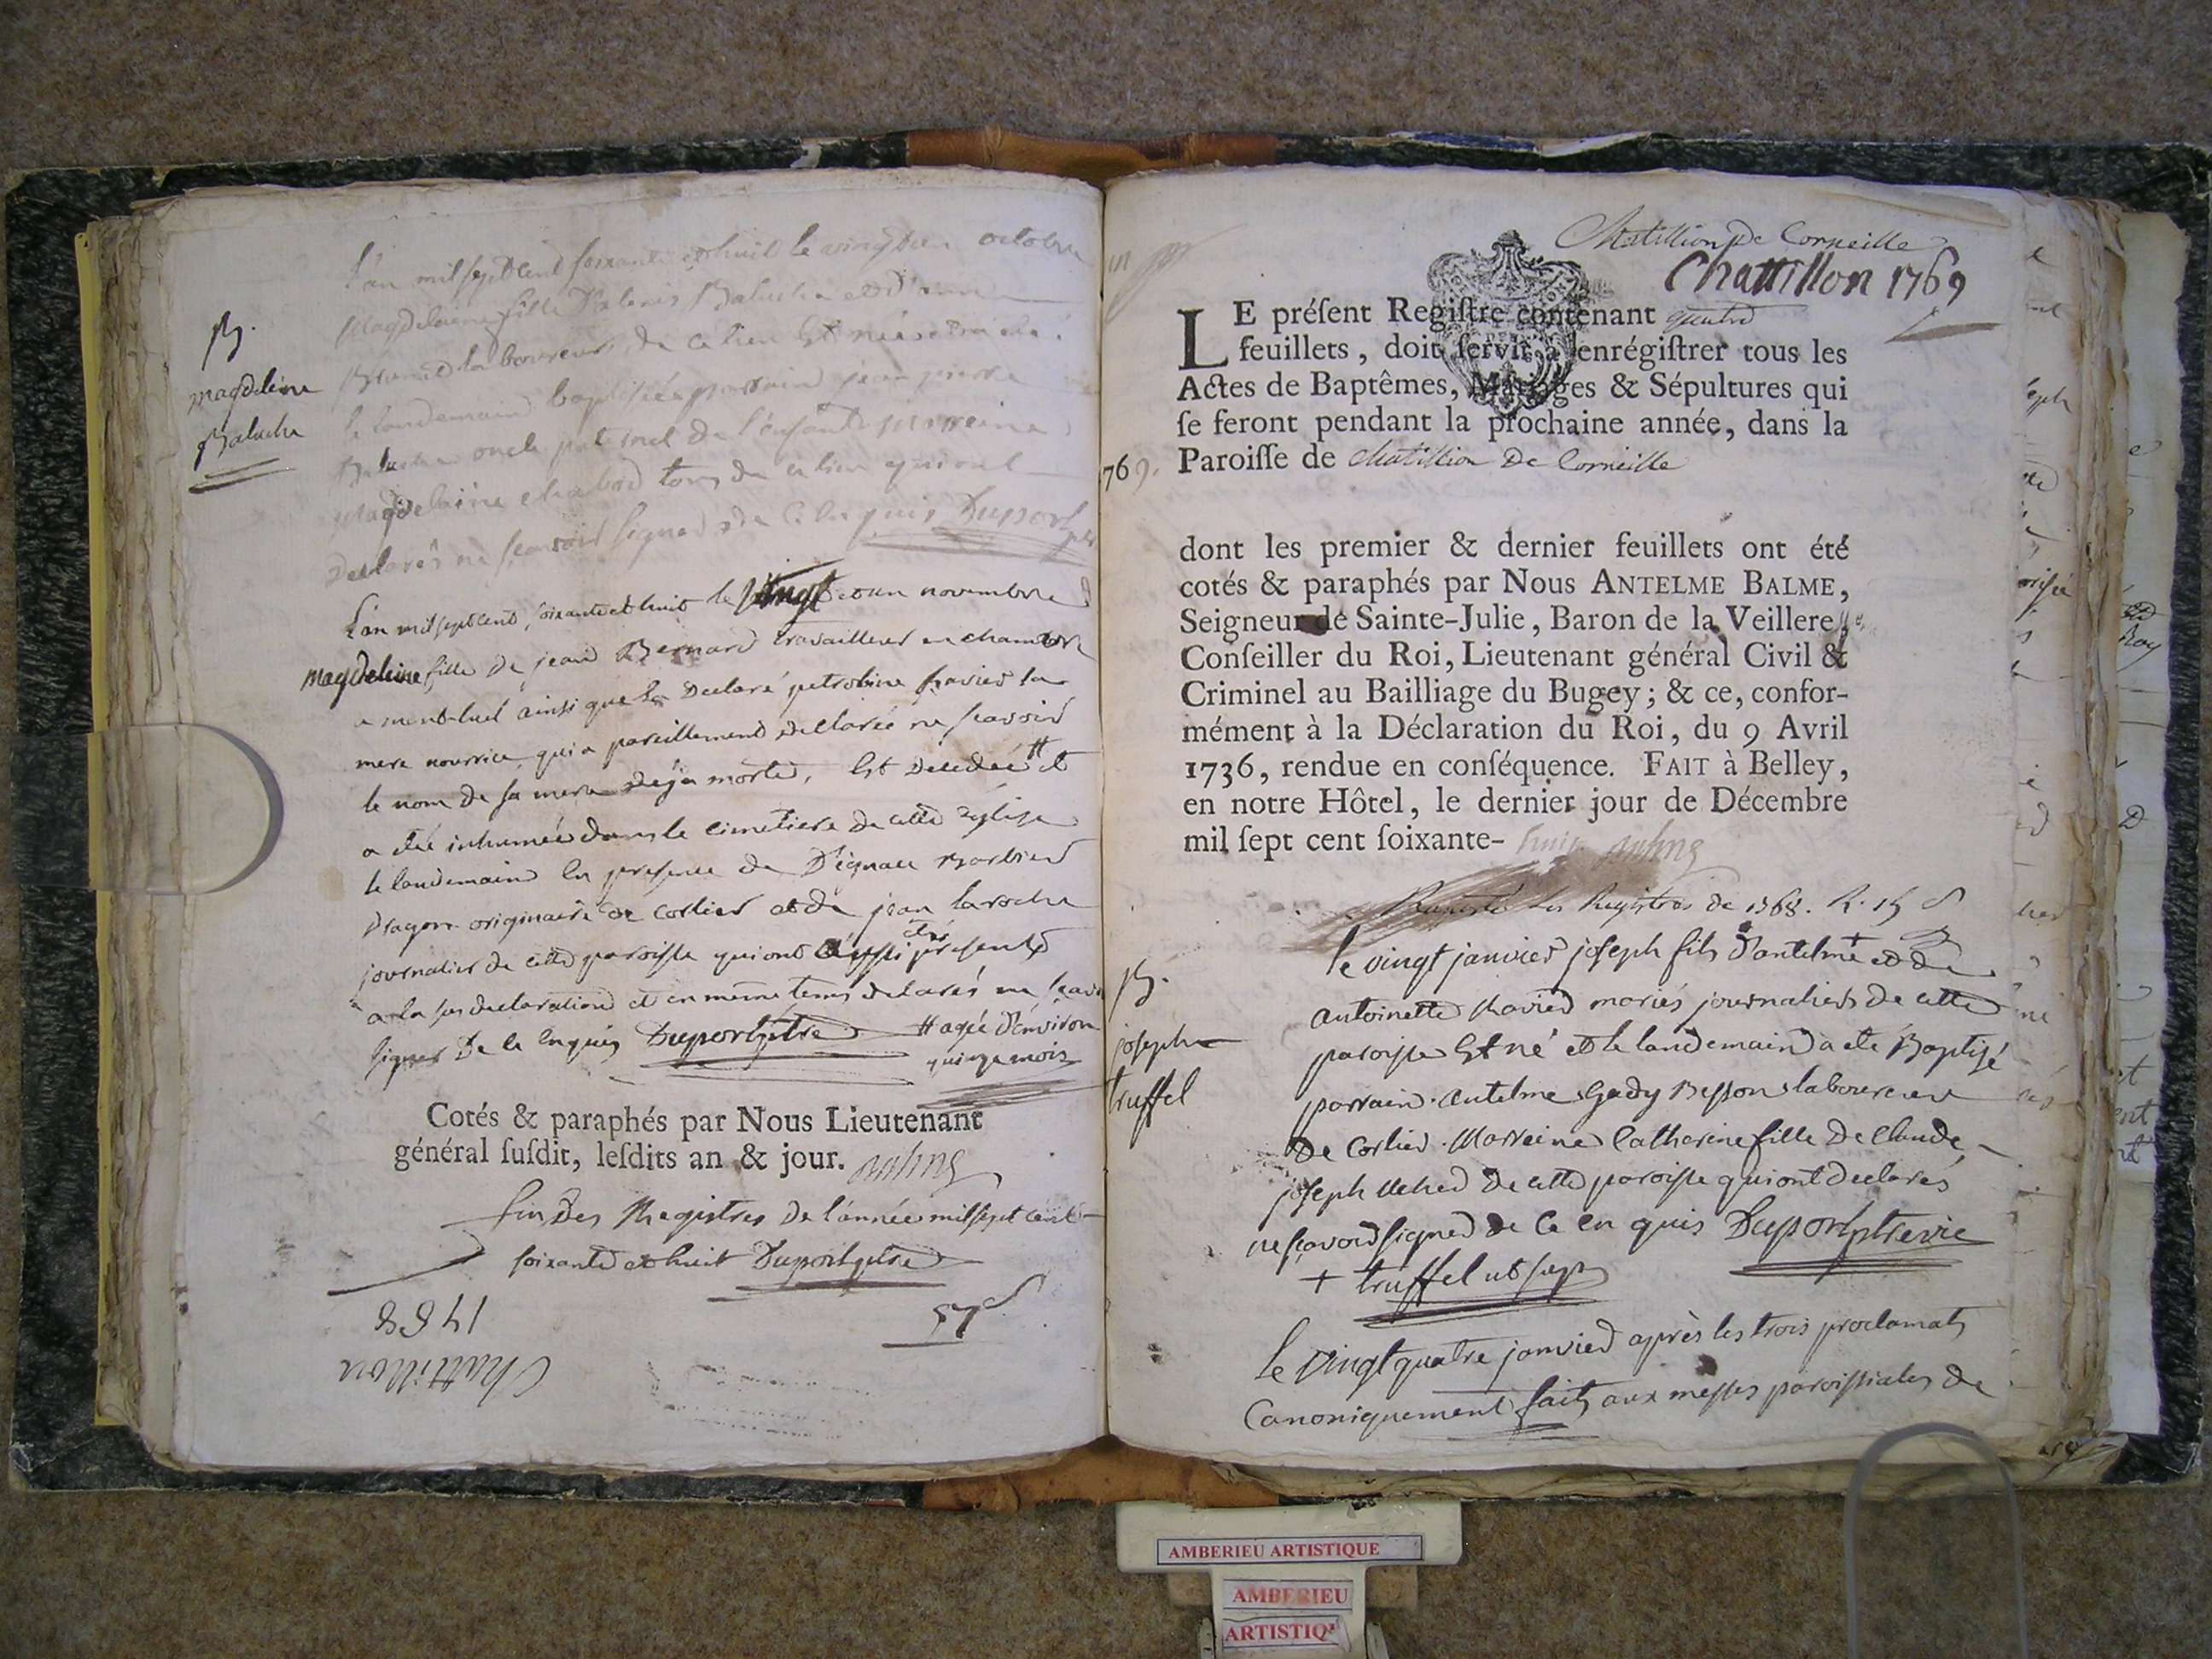 B.
magdeleine
Baluche
L'an mil sept cent soixante et huit le vingt octobre
Magdelaine fille d'alexis Baluche et
laboureurs de ce lieu est née et a été
le landemain baptisée parrain jean pierre
Baluche oncle paternel de l'enfant marreine
Magdelaine chabod tous de ce lieu qui ont
declarés ne sçavoir signer de ce enquis Duport ptre
L'an mil sept cent soixante et huit le vingt et un novembre
Magdeleine fille de jean Bernard travailleur en chamvre
a montluel ainsi que l'a declaré petroline ravier sa
mere nourrice qui a pareillement declarée ne scavoir
le nom de sa mere deja morte, est decedée # et
a été inhumée dans le cimetiere de cette église
le landemain en presence de D'ignace
Dragon originaire de corlier et de jean laroche
journalier de cette paroisse qui ont aussi été presents
a la sus declaration et en meme tems declarés ne scavoir
signer de ce enquis Duport ptre # agée d'environ
quinze mois
Cotés & paraphés par Nous Lieutenant
général ſuſdit, leſdits an & jour.
fin des Registres de l'année mil sept cent
soixante et huit Duport ptre
57
1768
Chattillon
Chatillion De Corneille
Chattillon 1769
LE préſent Regiſtre contenant quatre
feuillets, doit ſervir à enrégiſtrer tous les
Actes de Baptêmes, Mariages & Sépultures qui
ſe feront pendant la prochaine année, dans la
1769. Paroiſſe de Chatillion De Corneille
dont les premier & dernier feuillets ont été
cotés & paraphés par Nous ANTELME BALME,
Seigneur de Sainte-Julie, Baron de la Veillere
Conſeiller du Roi, Lieutenant général Civil &
Criminel au Bailliage du Bugey; & ce, confor-
mément à la Déclaration du Roi, du 9 Avril
1736, rendue en conſéquence. FAIT à Belley,
en notre Hôtel, le dernier jour de Décembre
mil ſept cent ſoixante- huit
les Registres de 1768.
B.
joseph
truffel
le vingt janvier joseph fils d'antelme + et de
antoinette ravier mariés journaliers de cette
paroisse est né et le landemain a été Baptisé
parrain antelme Gady Besson laboureur
de corlier. Marreine Catherine fille de Claude
joseph de cette paroisse qui ont declarés
ne sçavoir signer de ce en quis Duport ptre vic
+ truffel ut supra
le vingt quatre janvier après les trois proclamats
Canoniquement faits aux messes paroissiales de
AMBERIEU ARTISTIQUE
AMBERIEU
ARTISTIQ